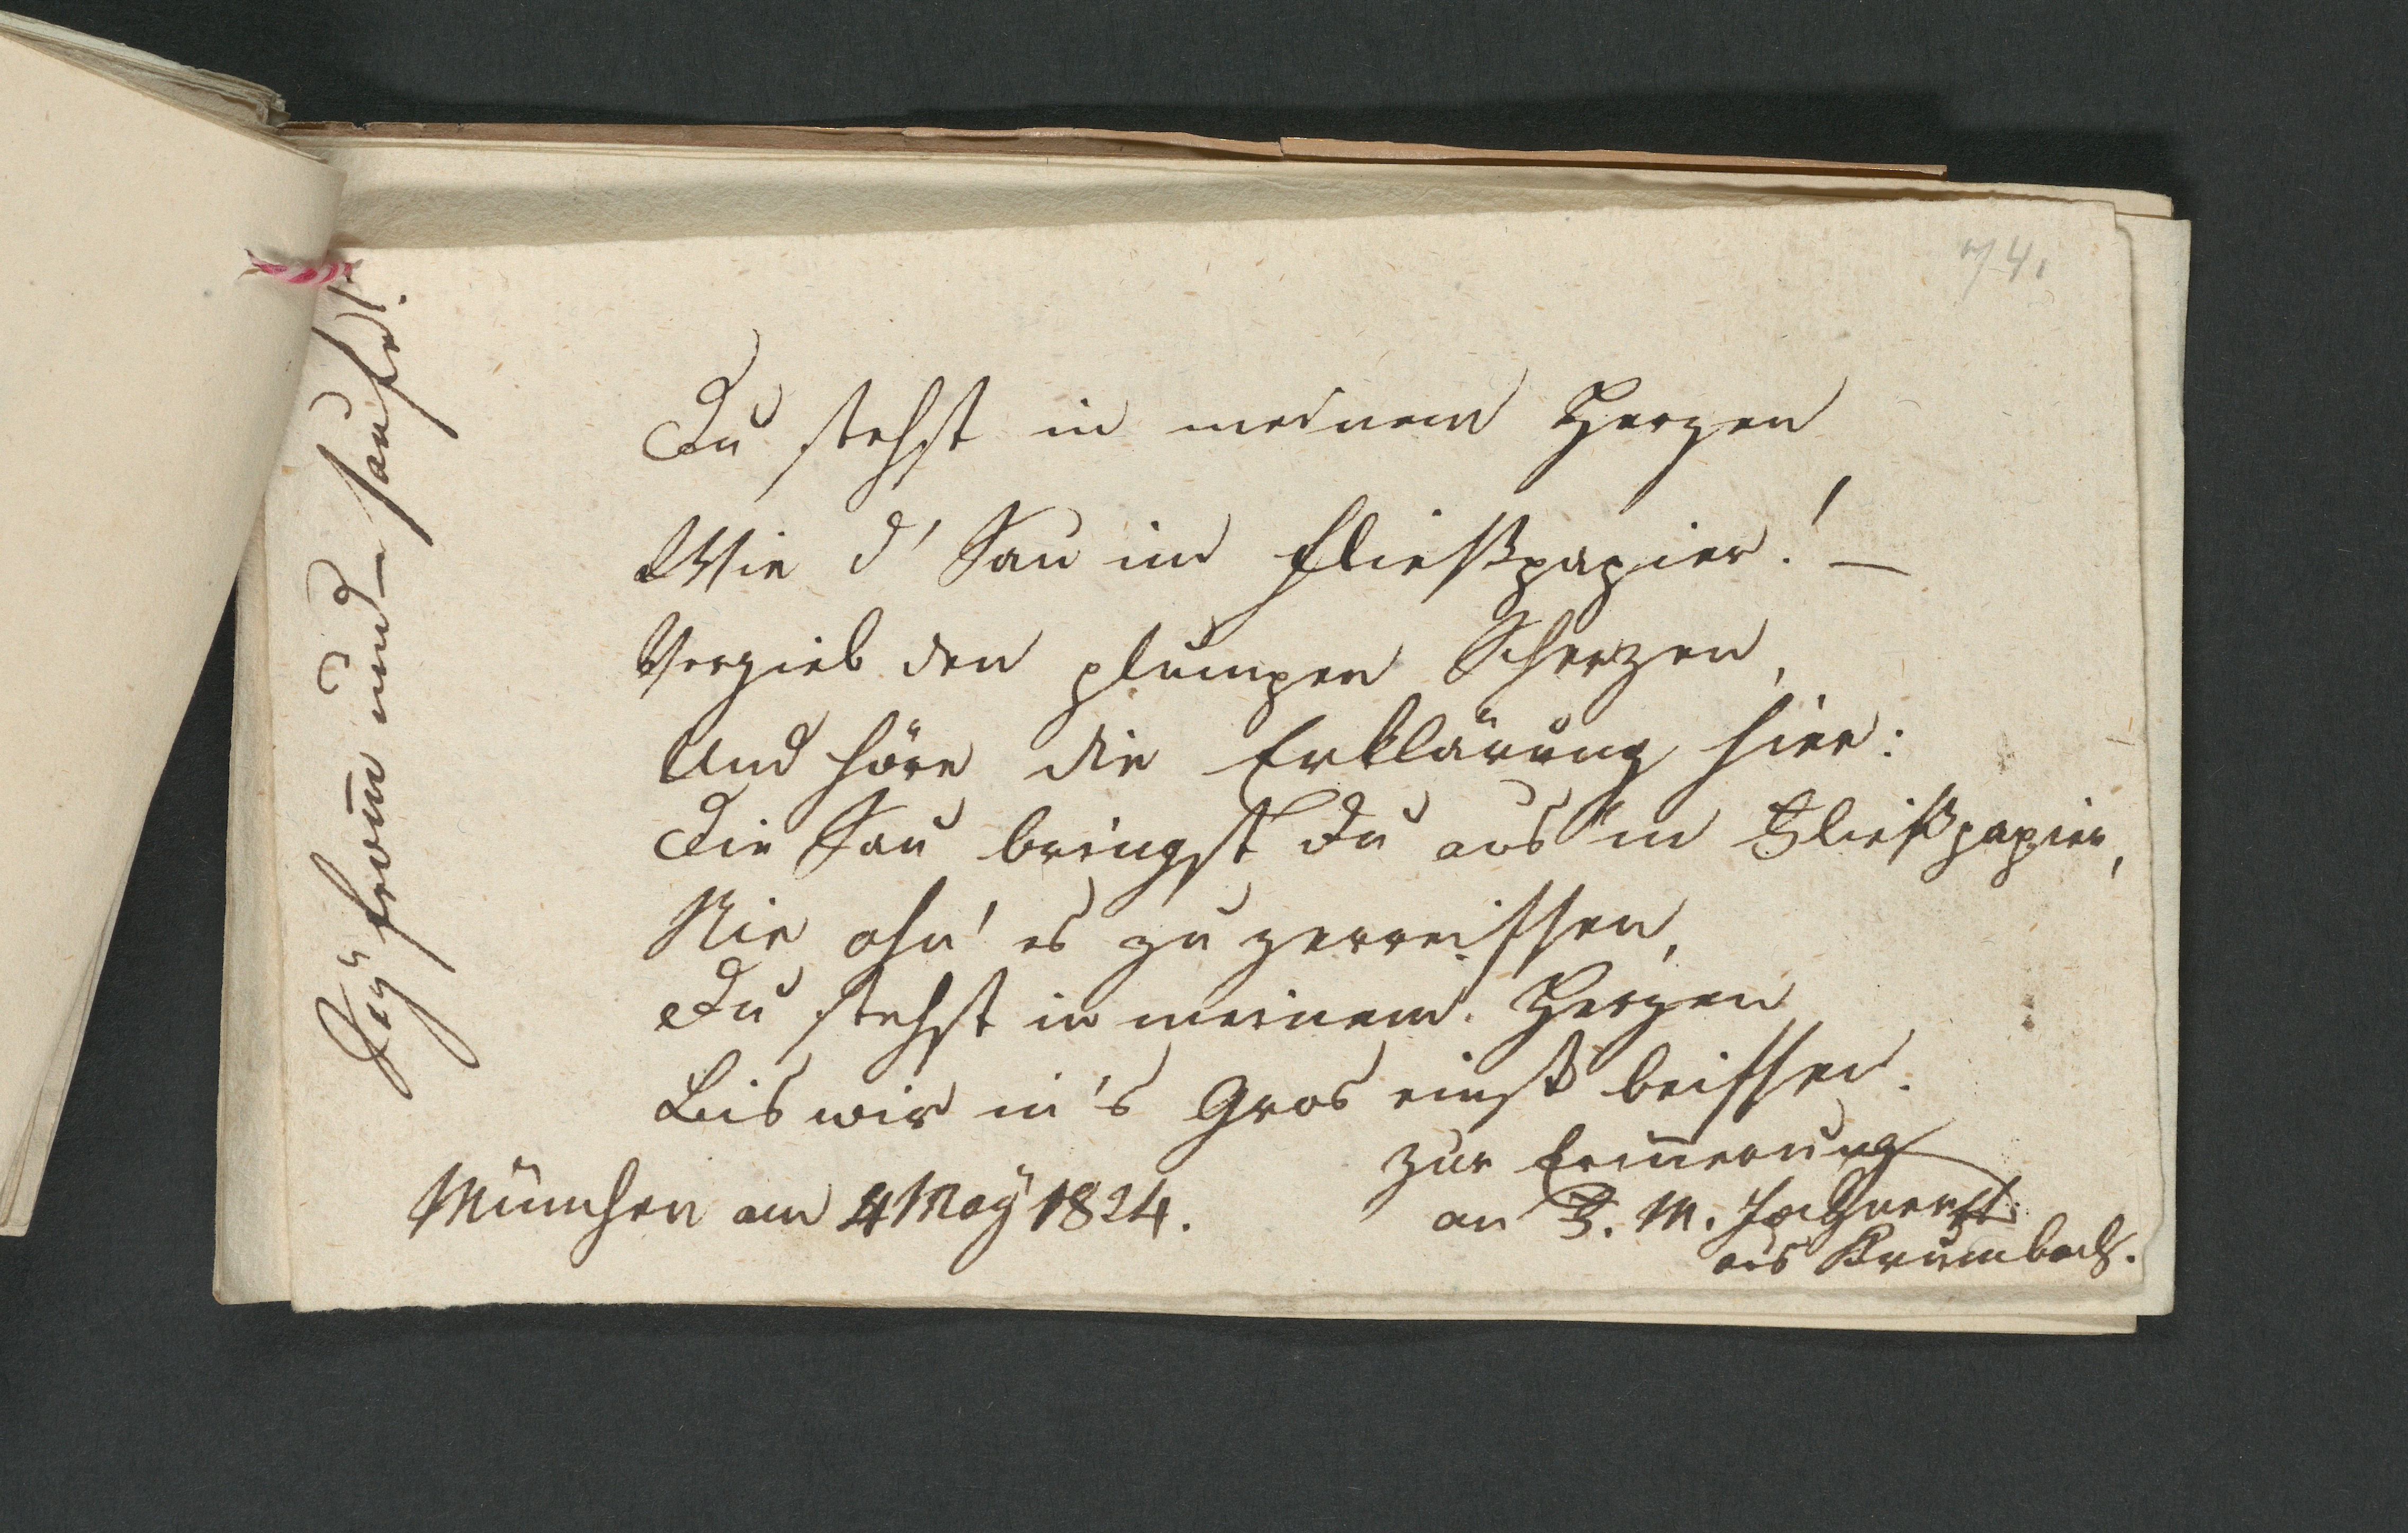 74.
Du stehst in meinem Herzen
Wie d' Sau im Fließpapier! —
Vergieb den plumpen Scherzen,
Und höre die Erklärung hier:
Die Sau bringst du aus'm Fließpapier,
Nie ohn' es zu zerreissen,
Du stehst in meinem Herzen
Bis wir in's Gras einst beissen.
zur Erinnerung
München am 4 May 1824.
an F. M.
aus Krumbach.
Sey from̄ und saufe!